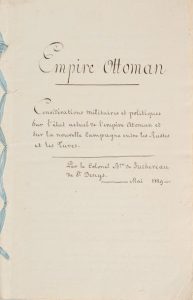 Empire Ottoman
Considérations militaires et politiques
sur l'état actuel de l'empire Ottoman et
sur la nouvelle Campagne entre les Russes
et les Turcs.
Par le Colonel Bon de Juchereau
de St Denys.
Mai 1829.